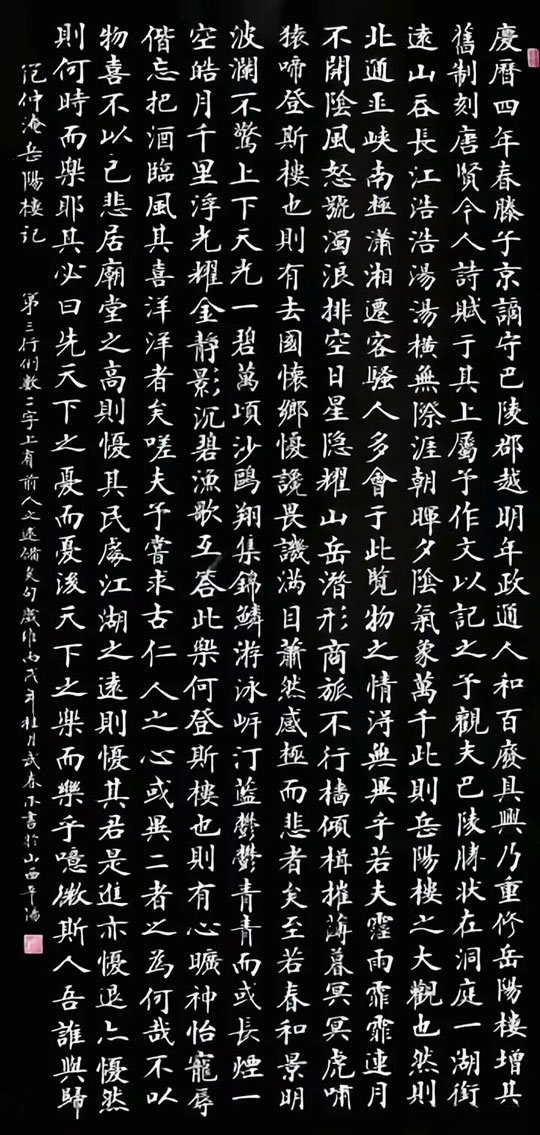 慶曆四年春滕子京謫守巴陵郡越明年政通人和百廢具興乃重修岳陽樓增其
舊制刻唐賢今人詩賦于其上屬予作文以記之予觀夫巴陵勝狀在洞庭一湖銜
遠山吞長江浩浩湯湯橫無際涯朝暉夕陰氣象萬千此則岳陽樓之大觀也然則
北通巫峽南極瀟湘遷客騷人多會于此覽物之情得無異乎若夫霪雨霏霏連月
不開陰風怒號濁浪排空日星隱耀山岳潛形商旅不行檣傾楫摧薄暮冥冥虎嘯
猿啼登斯樓也則有去國懷鄉憂讒畏譏滿目蕭然感極而悲者矣至若春和景明
波瀾不驚上下天光一碧萬頃沙鷗翔集錦鱗游泳岍汀藍鬱鬱青青而或長煙一
空皓月千里浮光耀金靜影沉碧漁歌互答此樂何登斯樓也則有心曠神怡寵辱
偕忘把酒臨風其喜洋洋者矣嗟夫予嘗求古仁人之心或異二者之為何哉不以
物喜不以己悲居廟堂之高則憂其民處江湖之遠則憂其君是進亦憂退亦憂然
則何時而樂耶其必曰先天下之憂而憂後天下之樂而樂乎噫微斯人吾誰與歸
范仲淹岳陽樓記 第三行倒數二字上有前人之述備矣句歲維丙戌年桂月武春書於山西平陽